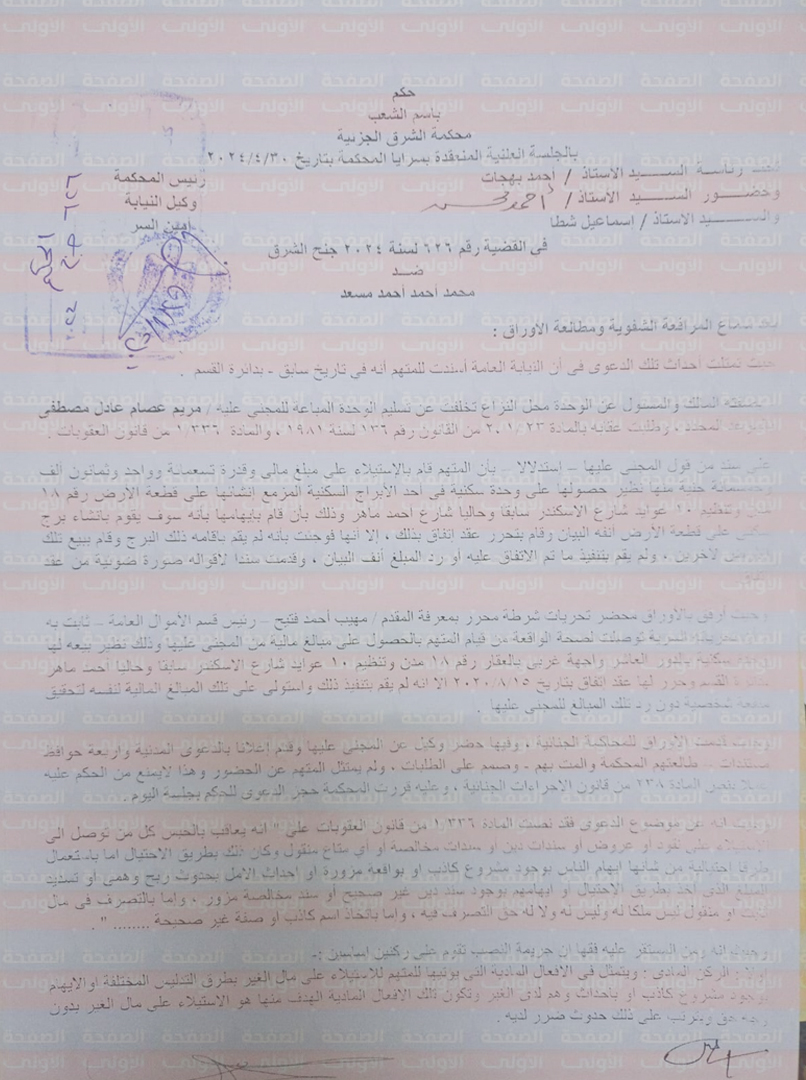 حكم
باسم الشعب
محكمة الشرق الجزئية
بالجلسة العلنية المنعقدة بسرايا المحكمة بتاريخ ٢٠٢٤/٤/٣٠
رئاسة الســـيد الاستاذ / أحمد بهجات رئيس المحكمة
وحضـــور الســـيد الاستاذ / أحمد وكيل النيابة
والســـــيد الاستاذ / اسماعيل شطا امين السر
فى القضية رقم ٦٢٦ لسنة ٢٠٢٤ جنح الشرق
ضـــد
محمد أحمد أحمد مسعد
سماع المرافعة الشفوية ومطالعة الاوراق :
حيث تمثلت أحداث تلك الدعوى فى أن النيابة العامة أسندت للمتهم أنه فى تاريخ سابق - بدائرة القسم .
المالك والمسئول عن الوحدة محل النزاع تخلفت عن تسليم الوحدة المباعة للمجنى عليه / مريم عصام عادل مصطفى
المحدد ، وطلبت عقابه بالمادة ٢٣ من القانون رقم ١٣٦ لسنة ١٩٨١ ، والمادة ١/٣٣٦ من قانون العقوبات .
على سند من قول المجنى عليها – إستدلالا – بأن المتهم قام بالإستيلاء على مبلغ مالى وقدرة تسعمائة وواحد وثمانون ألف
وخمسمائة جنية منها نظير حصولها على وحدة سكنية فى احد الأبراج السكنية المزمع إنشائها على قطعة الأرض رقم ١٨
مدن وتنظيم ١٠ عوايد شارع الاسكندر سابقا وحاليا شارع أحمد ماهر وذلك بأن قام بإيهامها بأنه سوف يقوم بانشاء برج
سكنى على قطعة الأرض انفه البيان وقام بتحرر عقد اتفاق بذلك ، إلا أنها فوجئت بأنه لم يقم باقامه ذلك البرج وقام ببيع تلك
لاخرين ، ولم يقم بتنفيذ ما تم الاتفاق عليه أو رد المبلغ أنف البيان ، وقدمت سندا لاقواله صورة ضوئية من عقد
وحيث أرفق بالأوراق محضر تحريات شرطة محرر بمعرفة المقدم / مهيب أحمد فتيح – رئيس قسم الأموال العامة – ثابت به
السرية توصلت لصحة الواقعة من قيام المتهم بالحصول على مبالغ مالية من المجنى عليها وذلك نظير بيعه لها
سكنية بالدور العاشر واجهة غربى بالعقار رقم ١٨ مدن وتنظيم ١٠ عوايد شارع الاسكندر سابقا وحاليا أحمد ماهر
القسم وحرر لها عقد اتفاق بتاريخ ٢٠٢٠/٨/١٥ الا انه لم يقم بتنفيذ ذلك واستولى على تلك المبالغ المالية لنفسه لتحقيق
منفعة شخصية دون رد تلك المبالغ للمجنى عليها .
وحيث قدمت الاوراق للمحاكمة الجنائية ، وفيها حضر وكيل عن المجنى عليها وقدم إعلانا بالدعوى المدنية واربعة حوافظ
مستندات طالعتهم المحكمة والمت بهم - وصمم على الطلبات ، ولم يمتثل المتهم عن الحضور وهذا لايمنع من الحكم عليه
عملا بنص المادة ٢٣٨ من قانون الاجراءات الجنائية ، وعليه قررت المحكمة حجز الدعوى للحكم بجلسة اليوم .
وحيث انه عن موضوع الدعوى فقد نصت المادة ١/٣٣٦ من قانون العقوبات على " انه يعاقب بالحبس كل من توصل الى
الاستيلاء على نقود أو عروض أو سندات دين أو سندات مخالصة أو أى متاع منقول وكان ذلك بطريق الاحتيال اما باستعمال
طرق إحتيالية من شانها ايهام الناس بوجود مشروع كاذب او بواقعة مزورة او احداث الامل بحدوث ربح وهمى أو تسديد
المبلغ الذى اخذ بطريق الاحتيال او ايهامهم بوجود سند دين غير صحيح أو سند مخالصة مزور . وإما بالتصرف فى مال
ثابت او منقول ليس ملكا له وليس له ولا له حق التصرف فيه ، وإما باتخاذ اسم كاذب أو صفة غير صحيحة ........ " .
وحيث انه ومن المستقر عليه فقها ان جريمة النصب تقوم على ركنين اساسين :-
اولا : الركن المادى : ويتمثل فى الافعال المادية التى يؤتيها للمتهم للاستيلاء على مال الغير بطرق التدليس المختلفة او الايهام
بوجود مشروع كاذب او باحداث وهم لدى الغير وتكون تلك الافعال المادية الهدف منها هو الاستيلاء على مال الغير بدون
وجه حق وترتب على ذلك حدوث ضرر لديه .
الصفحة الأولى